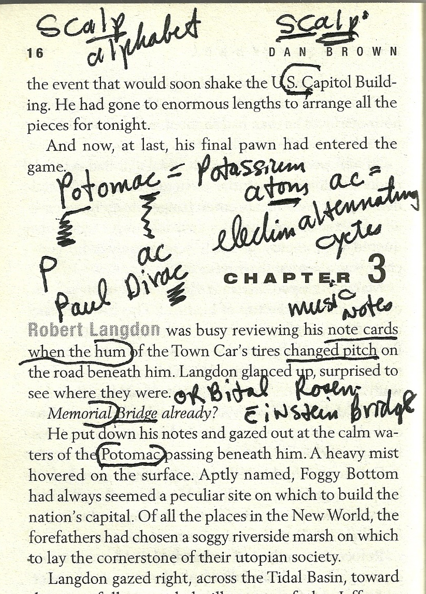 Scalp Scalp
alphabet
16 DAN BROWN
the event that would soon shake the U.S. Capitol Build-
ing. He had gone to enormous lengths to arrange all the
pieces for tonight.
And now, at last, his final pawn had entered the
game.
Potomac = Potassium
atoms ac =
alternating
cycles
P ac
Paul Dirac
CHAPTER 3
music notes
Robert Langdon was busy reviewing his note cards
when the hum of the Town Car's tires changed pitch on
the road beneath him. Langdon glanced up, surprised to
see where they were. ORBital Rosen-
Memorial Bridge already? EiNstein Bridge
He put down his notes and gazed out at the calm wa-
ters of the Potomac passing beneath him. A heavy mist
hovered on the surface. Aptly named, Foggy Bottom
had always seemed a peculiar site on which to build the
nation's capital. Of all the places in the New World, the
forefathers had chosen a soggy riverside marsh on which
to lay the cornerstone of their utopian society.
Langdon gazed right, across the Tidal Basin, toward